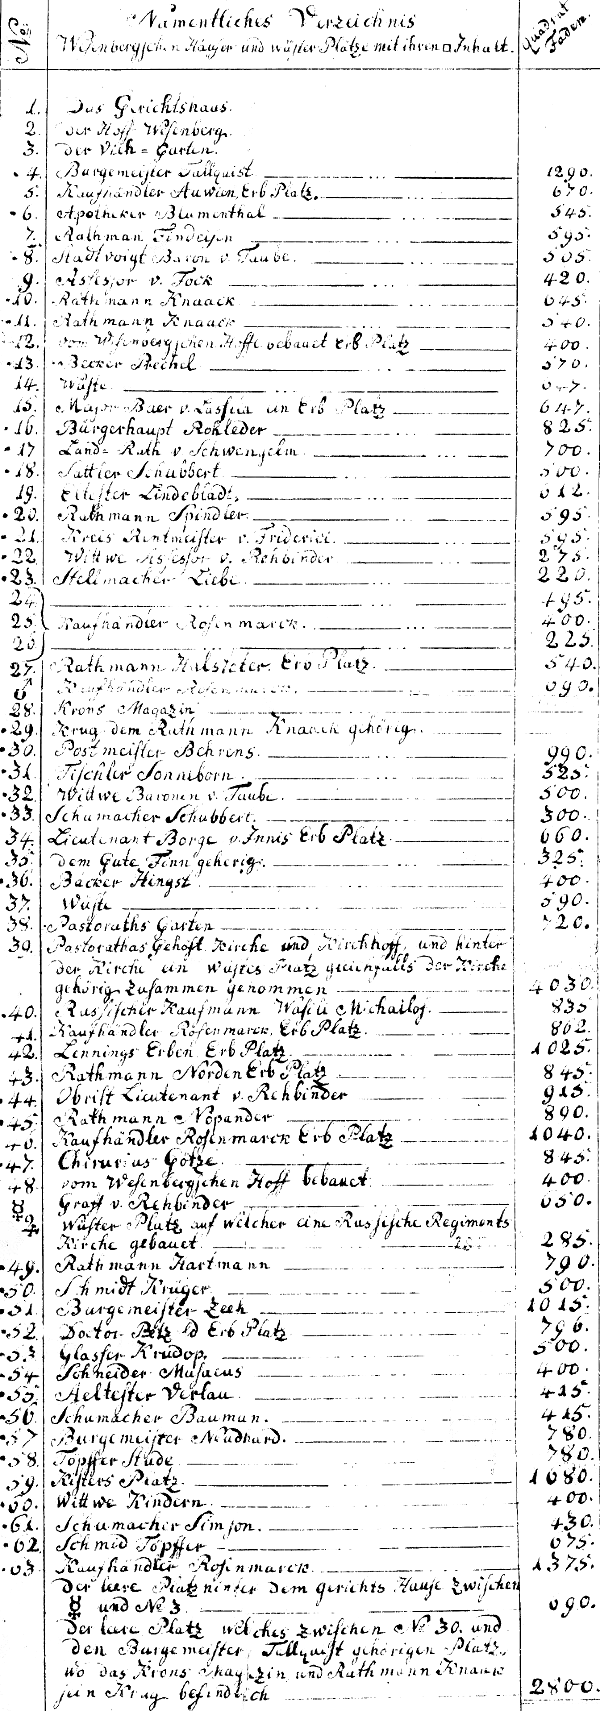 No: Namentliches Verzeichnis Quadrat Faden.
Wesenbergschen Häuser und wüster Plätze mit ihren □ Inhalt.
1. Das Gerichtshaus.
2. der Hoff Wesenberg.
3. der Vieh-Garten.
4. Burgemeister Tallquist 1290.
5. Kaufhändler Erb Platz. 670.
6. Apotheker Blumenthal 545.
7. Rathman Findeisen 595.
8. Stadtvoigt Baron v. Taube. 505.
9. Assessor v. Fock 420.
10. Rathmann Knaack 645.
11. Rathmann Knaack 540.
12. vom Wesenbergschen Hoffe bebauet Erb Platz 400.
13. Becker 570.
14. Wüste
15. Major Baer v. ein Erb Platz 647.
16. Bürgerhaupt Rohleder 825.
17 Land-Rath v. Schwengelm 700.
18. Sattler Schubbert 500.
19. Eltester Lindebladt. 612.
20. Rathmann Spindler. 595.
21. Kreis Rentmeister v. Friderici. 595.
22. Wittwe Assessor v. Rehbinder 275.
23. Stellmacher Liebe. 220.
24. 495.
25. Kaufhändler Rosenmarck. 400.
26. 225.
27. Rathmann Erb Platz. 540.
Kaufhändler Rosenmarck. 690.
28. Krons Magazin
29. Krug dem Rathmann Knaack gehörig.
30. Postmeister Behrens. 990.
31. Tischler Sonneborn. 525.
32. Wittwe Baronin v. Taube. 500.
33. Schumacher Schubbert. 300.
34. Lieutenant Borge v. Innis Erb Platz 660.
35. dem Gute Finn gehörig. 325.
36. Bäcker Hengst 400.
37. Wüste 590.
38. Pastoraths Garten 720.
39. Pastorathas Gehöft. Kirche und Kirchhoff, und hinter
der Kirche ein wüstes Platz gleienfalls der Kirche
gehörig zusammen genommen 4030.
40. Russischer Kaufmann Wasili Michailof. 835
41. Kaufhändler Rosenmarck. Erb Platz. 862.
42. Lennings Erben Erb Platz 1025.
43. Rathmann Norden Erb Platz 845.
44. Obrist Lieutenant v. Rehbinder 915.
45. Rathmann Nopander 890.
46. Kaufhändler Rosenmarck Erb Platz 1040.
47. Chirurius Götze 845.
48. vom Wesenbergschen Hoff bebauet 400.
Graff v. Rehbinder 650.
Wüster Platz auf welcher eine Russische Regiments
Kirche gebauet 285.
49. Rathmann Hartmann 790.
50. Schmidt Krüger 500.
51. Burgemeister Zeeh 1015.
52. Doctor Erb Platz 796.
53. Glasser Krudop. 500.
54. Schneider Musaeus 400.
55. Aeltester Verlau 415.
56. Schumacher Bauman. 415.
57. Burgemeister Neudhard. 780.
58. Töpffer Stude 780.
59. Risters Platz. 1680.
60. Wittwe Kindern. 400.
61. Schumacher Simson. 430.
62. Schmid Töpffer 675.
63. Kaufhändler Rosenmarck 1375.
Der leere Platz hinter dem gerichts Hause zwischen
und No 3. 690.
Der leere Platz welches zwischen No 30. und
den Burgemeister Tallquist gehörigen Platz.
wo das Krons Magazin und Rathmann Knaack
sein Krug befindlich 2800.